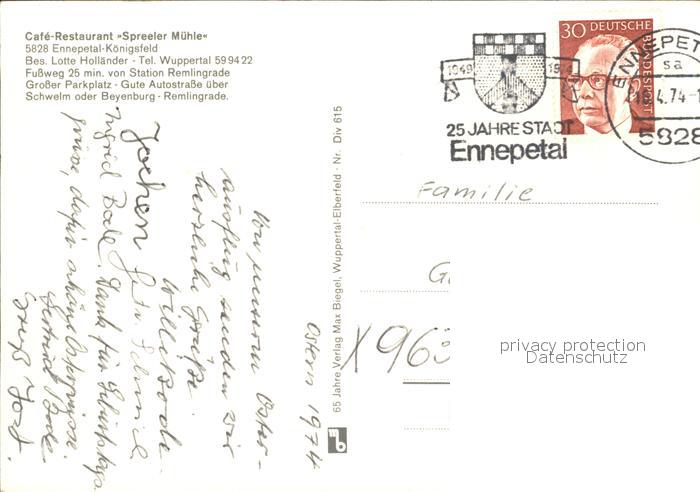 Café-Restaurant »Spreeler Mühle«
5828 Ennepetal-Königsfeld
Bes. Lotte Holländer - Tel. Wuppertal 59 94 22
Fußweg 25 min. von Station Remlingrade
Großer Parkplatz - Gute Autostraße über
Schwelm oder Beyenburg - Remlingrade.
30 DEUTSCHE
BUNDESPOST
1949 1974
25 JAHRE STADT
Ennepetal
ENNEPET
sa
4.74-1
5828
65 Jahre Verlag Max Biegel, Wuppertal-Elberfeld · Nr. Div 615
mb
Familie
G
X963
privacy protection
Datenschutz
Ostern 1974
Von unserem Oster-
ausflug senden wir
herzliche Grüße
Willi Bode
Jochen
Ingrid Bode. Dank für Geburtstags
grüsse, dafür schöne Ostergrüsse.
Gertrud Bode
Gruß Jost.